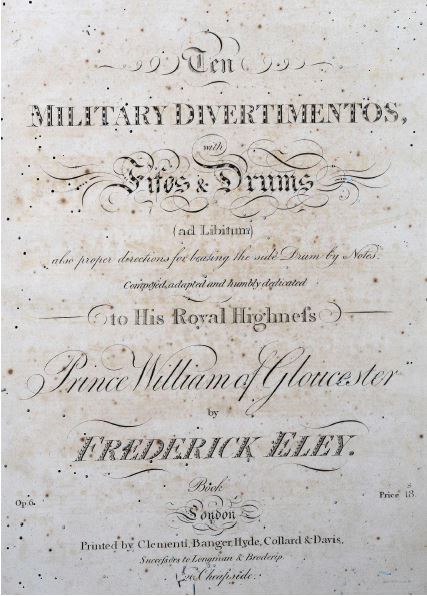 Ten
MILITARY DIVERTIMENTOS,
with
Fifes & Drums
(ad Libitum)
also proper directions for beating the side Drum by Notes.
Composed, adapted and humbly dedicated
to His Royal Highneſs
Prince William of Gloucester
by
FREDERICK ELEY.
Book
Op. 6. Price 18.s
London
Printed by Clementi, Banger, Hyde, Collard & Davis,
Successors to Longman & Broderip.
26 Cheapside.